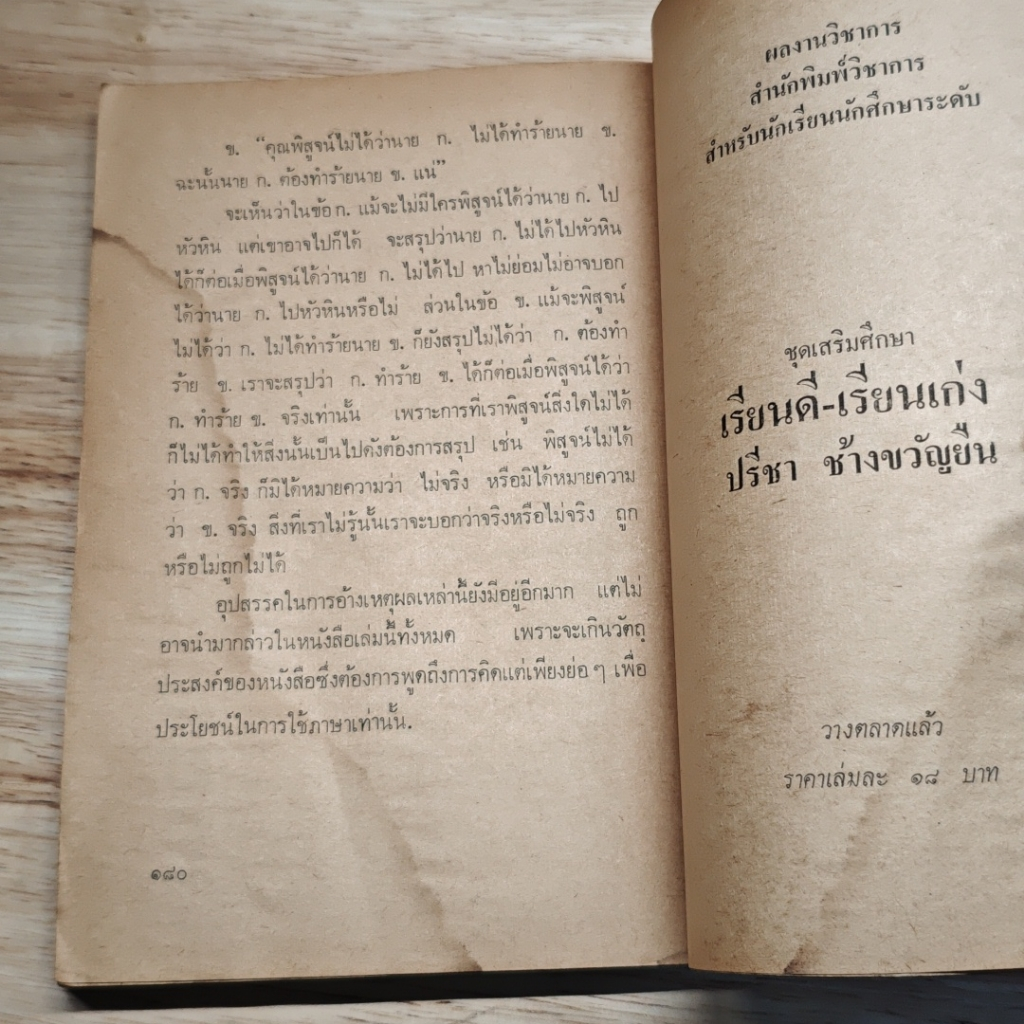 ข. “คุณพิสูจน์ไม่ได้ว่านาย ก. ไม่ได้ทำร้ายนาย ข.
ฉะนั้นนาย ก. ต้องทำร้ายนาย ข. แน่”
จะเห็นว่าในข้อ ก. แม้จะไม่มีใครพิสูจน์ได้ว่านาย ก. ไป
หัวหิน แต่เขาอาจไปก็ได้ จะสรุปว่านาย ก. ไม่ได้ไปหัวหิน
ได้ก็ต่อเมื่อพิสูจน์ได้ว่านาย ก. ไม่ได้ไป หาไม่ย่อมไม่อาจบอก
ได้ว่านาย ก. ไปหัวหินหรือไม่ ส่วนในข้อ ข. แม้จะพิสูจน์
ไม่ได้ว่า ก. ไม่ได้ทำร้ายนาย ข. ก็ยังสรุปไม่ได้ว่า ก. ต้องทำ
ร้าย ข. เราจะสรุปว่า ก. ทำร้าย ข. ได้ก็ต่อเมื่อพิสูจน์ได้ว่า
ก. ทำร้าย ข. จริงเท่านั้น เพราะการที่เราพิสูจน์สิ่งใดไม่ได้
ก็ไม่ได้ทำให้สิ่งนั้นเป็นไปดังต้องการสรุป เช่น พิสูจน์ไม่ได้
ว่า ก. จริง ก็มิได้หมายความว่า ไม่จริง หรือมิได้หมายความ
ว่า ข. จริง สิ่งที่เราไม่รู้นั้นเราจะบอกว่าจริงหรือไม่จริง ถูก
หรือไม่ถูกไม่ได้
อุปสรรคในการอ้างเหตุผลเหล่านี้ยังมีอยู่อีกมาก แต่ไม่
อาจนำมากล่าวในหนังสือเล่มนี้ทั้งหมด เพราะจะเกินวัตถุ
ประสงค์ของหนังสือซึ่งต้องการพูดถึงการคิดแต่เพียงย่อ ๆ เพื่อ
ประโยชน์ในการใช้ภาษาเท่านั้น.
๑๘๐
ผลงานวิชาการ
สำนักพิมพ์วิชาการ
สำหรับนักเรียนนักศึกษาระดับ
ชุดเสริมศึกษา
เรียนดี-เรียนเก่ง
ปรีชา ช้างขวัญยืน
วางตลาดแล้ว
ราคาเล่มละ ๑๘ บาท